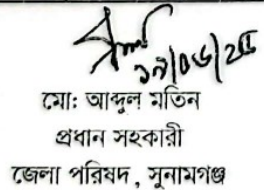 ১৯/০৬/২৫
মো: আব্দুল মতিন
প্রধান সহকারী
জেলা পরিষদ , সুনামগঞ্জ